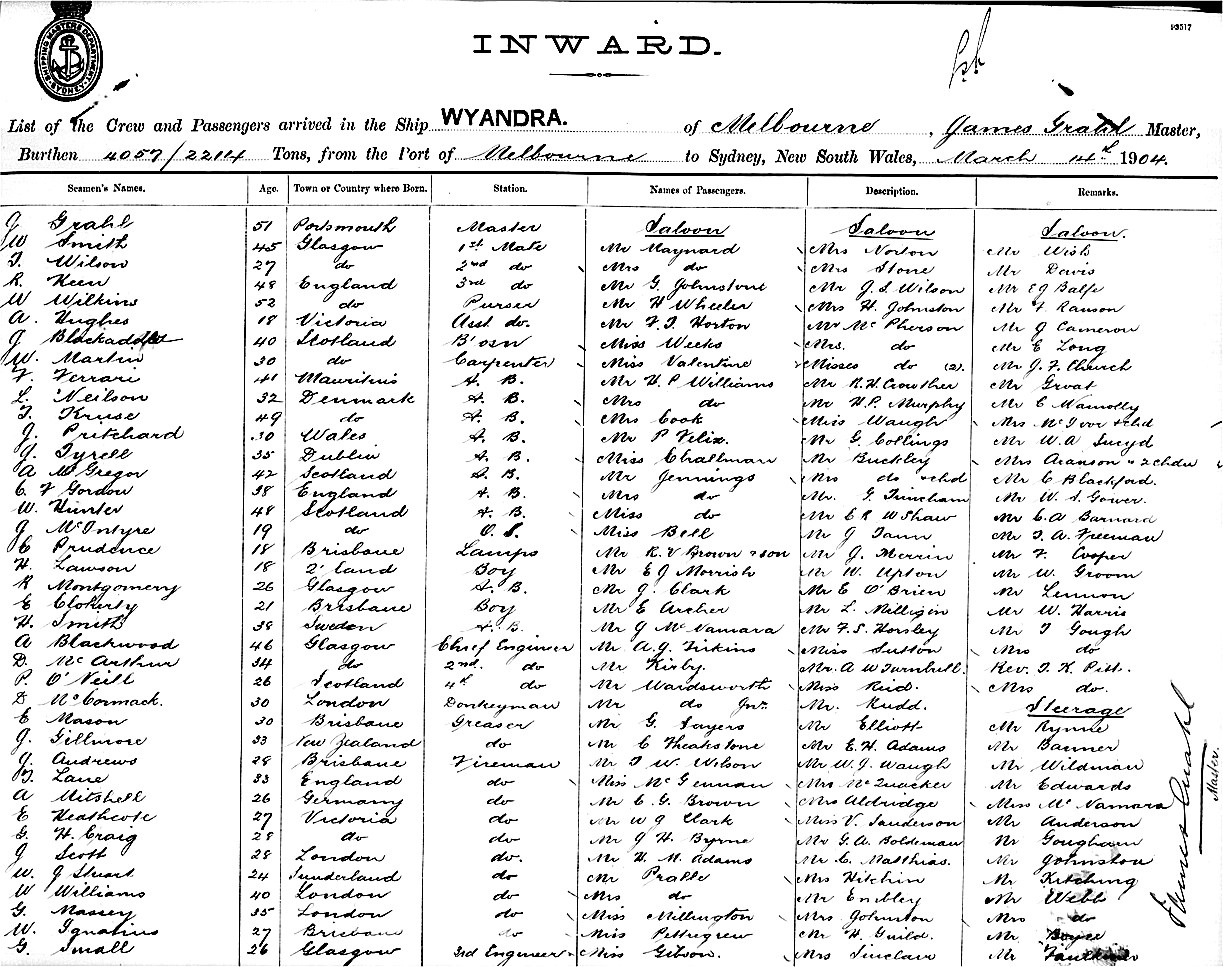 SHIPPING MASTERS DEPARTMENT SYDNEY
93517
INWARD.
List of the Crew and Passengers arrived in the Ship WYANDRA. of Melbourne, James Grahl Master,
Burthen 4057/2214 Tons, from the Port of Melbourne to Sydney, New South Wales, March 14th 1904.
Seamen's Names. Age. Town or Country where Born. Station. Names of Passengers. Description. Remarks.
J Grahl 51 Portsmouth Master Saloon Saloon Saloon.
W Smith 45 Glasgow 1st Mate Mr Maynard Mrs Norton Mr Wish
T. Wilson 27 do 2nd do Mrs do Mrs Stone Mr Davis
R. Keen 48 England 3rd do Mr G. Johnstone Mr J. S. Wilson Mr E J Balfe
W Wilkins 52 do Purser Mr H Wheeler Mrs H. Johnston Mr F Ranson
A. Hughes 18 Victoria Asst do. Mr F. T. Horton Mr McPherson Mr J Cameron
J Blackadder 40 Scotland B'osn Miss Weeks Mrs. do Mr E Long
W. Martin 30 do Carpenter Miss Valentine Misses do (2). Mr J. F. Church
F. Ferrari 41 Mauritius A. B. Mr H. P Williams Mr R. H. Crowther Mr Groat
L. Neilson 32 Denmark A. B. Mrs do Mr H. P. Murphy Mr C
T. Kruse 49 do A. B. Mrs Cook Miss Waugh Mrs McIvor & chd
J. Pritchard 30 Wales A. B. Mr P Velix. Mr G. Collings Mr W. A
J. Tyrell 35 Dublin A. B. Miss Challman Mr Buckley Mrs Aranson " 2 chdn
A McGregor 42 Scotland A. B. Mr Jennings Mrs do & chd Mr C Blackford.
C. F Gordon 38 England A. B. Mrs do Mr. G. Mr W. S. Gower.
W. Hunter 48 Scotland A. B. Miss do Mr E R W Shaw Mr C. A Barnard
J McIntyre 19 do O. S. Miss Bell Mr J Tann Mr T. A. Freeman
C Prudence 18 Brisbane Lamps Mr R. V Brown & son Mr J. Merrin Mr F. Cooper
H. Lawson 18 Q'land Boy Mr E J Morrish Mr W. Upton Mr W. Groom
R Montgomery 26 Glasgow A. B. Mr J. Clark Mr E O'Brien Mr Lennon
E Clokerty 21 Brisbane Boy Mr E Archer Mr L. Milligin Mr W. Harris
H. Smith 38 Sweden A. B. Mr J McNamara Mr F. S. Horsley Mr T Gough
A Blackwood 46 Glasgow Chief Engineer Mr A. G. Firkins Miss Sutton Mrs do
D. McArthur 34 do 2nd. do Mr Kirby. Mr. A W Turnbull. Rev. T. K. Pitt.
P. O'Neill 26 Scotland 4th do Mr Wardsworth Miss Reid. Mrs do.
D McCormack. 30 London Donkeyman Mr do Jnr. Mr. Rudd. Steerage
E Mason 30 Brisbane Greaser Mr G. Sayers Mr Elliott Mr Rynne
J. Gillmore 33 New Zealand do Mr C Theakstone Mr E. H. Adams Mr Banner
J. Andrews 28 Brisbane Fireman Mr T. W. Wilson Mr W. J. Waugh Mr Wildman
T. Lane 33 England do Miss McGennan Mrs McQuacker Mr Edwards
A Mitshell 26 Germany do Mr C. G. Brown Mrs Aldridge Miss McNamara
E Heathcote 27 Victoria do Mr W J Clark Miss V. Sanderson Mr Anderson
G. H. Craig 28 do do Mr J H. Byrne Mr G. A. Boldeman Mr Gougham
J Scott 28 London do. Mr H. M. Adams Mr C. Matthias. Mr Johnston
W. J Stuart 24 Sunderland do Mr Pralle Mrs Hitchin Mr Kitching
W Williams 40 London do Mrs do Mr Embley Mr Webb
G. Massey 35 London do Miss Millington Mrs Johnston Mrs do
W. Ignatius 27 Brisbane do Miss Pettegrew Mr H. Guild. Mr Boyce
G. Small 26 Glasgow 3rd Engineer Miss Gibson. Mrs Sinclair Mr Faulkner
James Grahl
Master.